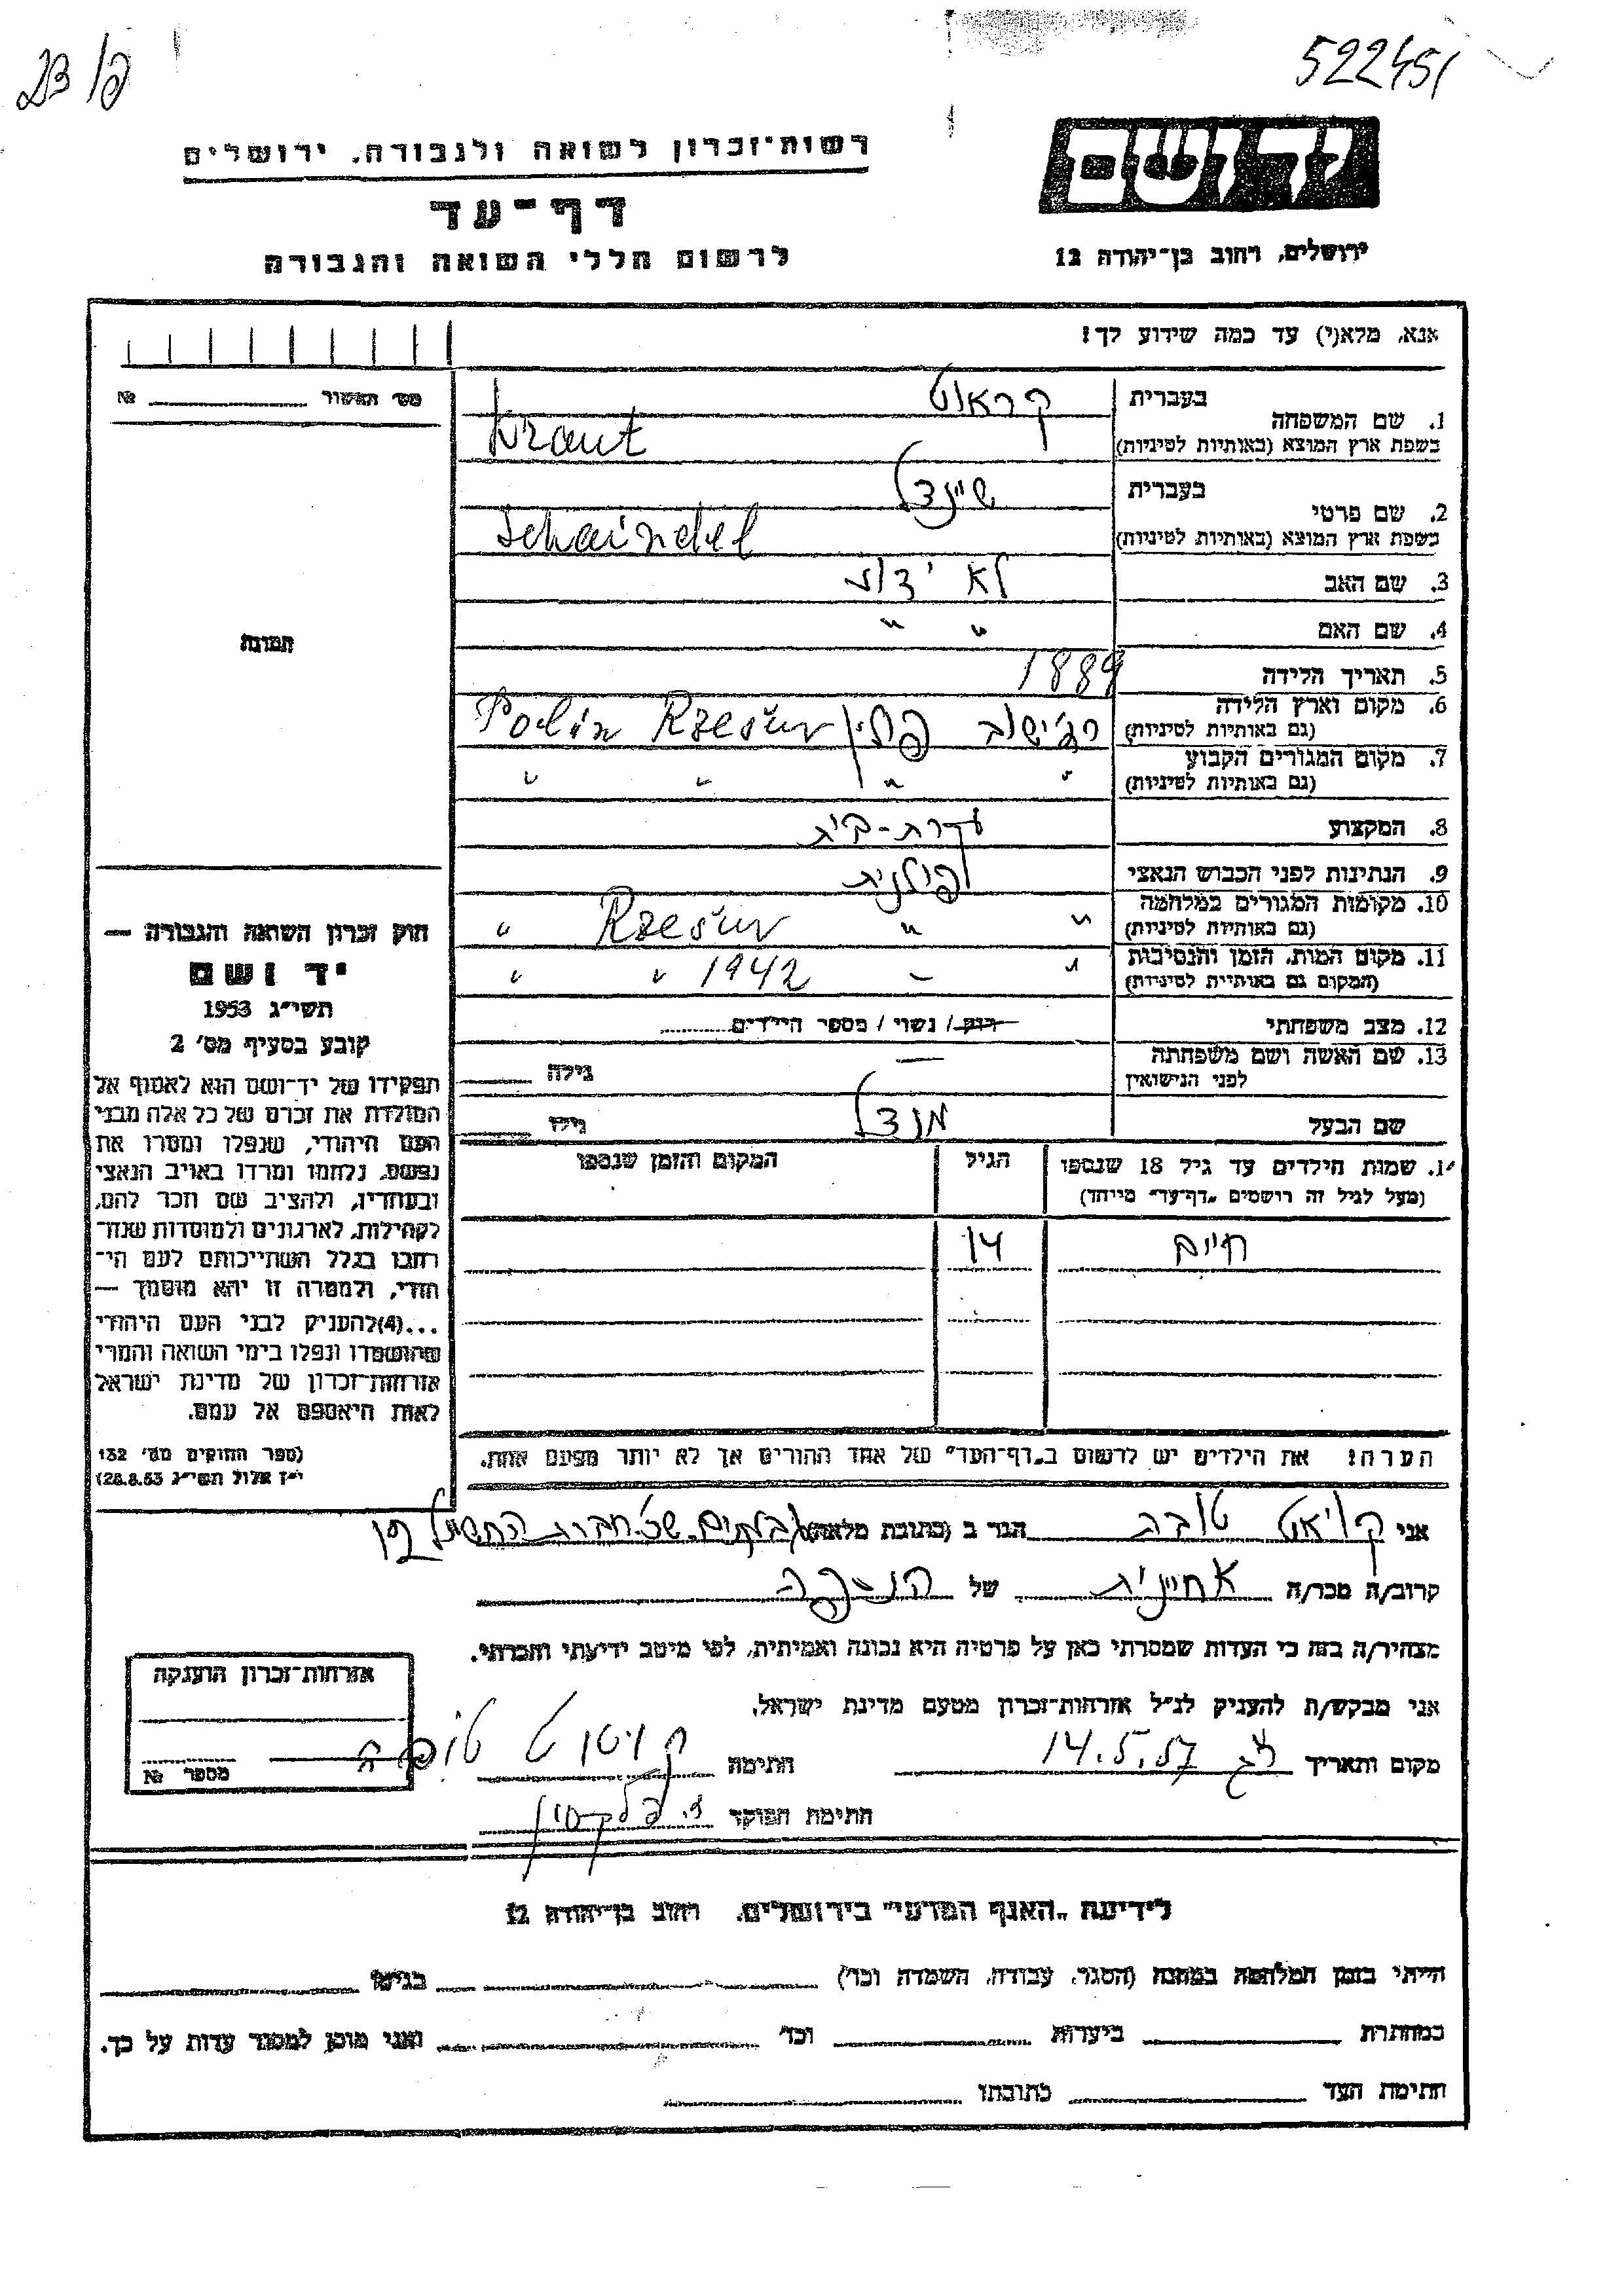 522451
רשות־זכרון לשואה ולגבורה, ירושלים
דף־עד
לרשום חללי השואה והגבורה
יד ושם
ירושלים, רחוב בן־יהודה 12
אנא, מלא(י) עד כמה שידוע לך!
מס' האשור №
1. שם המשפחה
בעברית קראוט
בשפת ארץ המוצא (באותיות לטיניות) Kraut
2. שם פרטי
בעברית שיינדל
בשפת ארץ המוצא (באותיות לטיניות) Schaindel
3. שם האב לא ידוע
4. שם האם " "
5. תאריך הלידה 1889
6. מקום וארץ הלידה (גם באותיות לטיניות) רז'ישוב פולין Rzesuv Polin
7. מקום המגורים הקבוע (גם באותיות לטיניות) " " " "
8. המקצוע עקרת-בית
9. הנתינות לפני הכבוש הנאצי פולנית
10. מקומות המגורים במלחמה (גם באותיות לטיניות) " " Rzesuv "
11. מקום המות, הזמן והנסיבות (המקום גם באותיות לטיניות) " – 1942 " "
12. מצב משפחתי רוק/ נשוי / מספר הילדים
13. שם האשה ושם משפחתה לפני הנישואין — גילה
שם הבעל מנדל גילו
14. שמות הילדים עד גיל 18 שנספו
(מעל לגיל זה רושמים „דף־עד" מייחד)
הגיל
המקום והזמן שנספו
חיים 14
הערה: את הילדים יש לרשום ב„דף־העד" של אחד ההורים אך לא יותר מפעם אחת.
תמונה
חוק זכרון השואה והגבורה —
יד ושם
תשי"ג 1953
קובע בסעיף מס' 2
תפקידו של יד־ושם הוא לאסוף אל
המולדת את זכרם של כל אלה מבני
העם היהודי, שנפלו ומסרו את
נפשם, נלחמו ומרדו באויב הנאצי
ובעוזריו, ולהציב שם וזכר להם,
לקהילות, לארגונים ולמוסדות שנח־
רבו בגלל השתייכותם לעם הי־
הודי, ולמטרה זו יהא מוסמך —
...(4) להעניק לבני העם היהודי
שהושמדו ונפלו בימי השואה והמרי
אזרחות־זכרון של מדינת ישראל
לאות היאספם אל עמם.
(ספר החוקים מס' 132
י"ז אלול תשי"ג 28.8.53)
אני קויאט טובה הגר ב (כתובת מלאה)
קרוב/ה מכר/ה אחיינית של הנספה
מצהיר/ה בזה כי העדות שמסרתי כאן על פרטיה היא נכונה ואמיתית, לפי מיטב ידיעתי והכרתי.
אני מבקש/ת להעניק לנ"ל אזרחות־זכרון מטעם מדינת ישראל.
מקום ותאריך 14.5.57 חתימה טובה
חתימת הפוקד
אזרחות־זכרון הוענקה
מספר №
לידיעת „האגף המדעי" בירושלים, רחוב בן־יהודה 12
הייתי בזמן המלחמה במחנה (הסגר, עבודה, השמדה וכד') בגיטו
במחתרת ביערות וכד' ואני מוכן למסור עדות על כך.
חתימת העד כתובתו